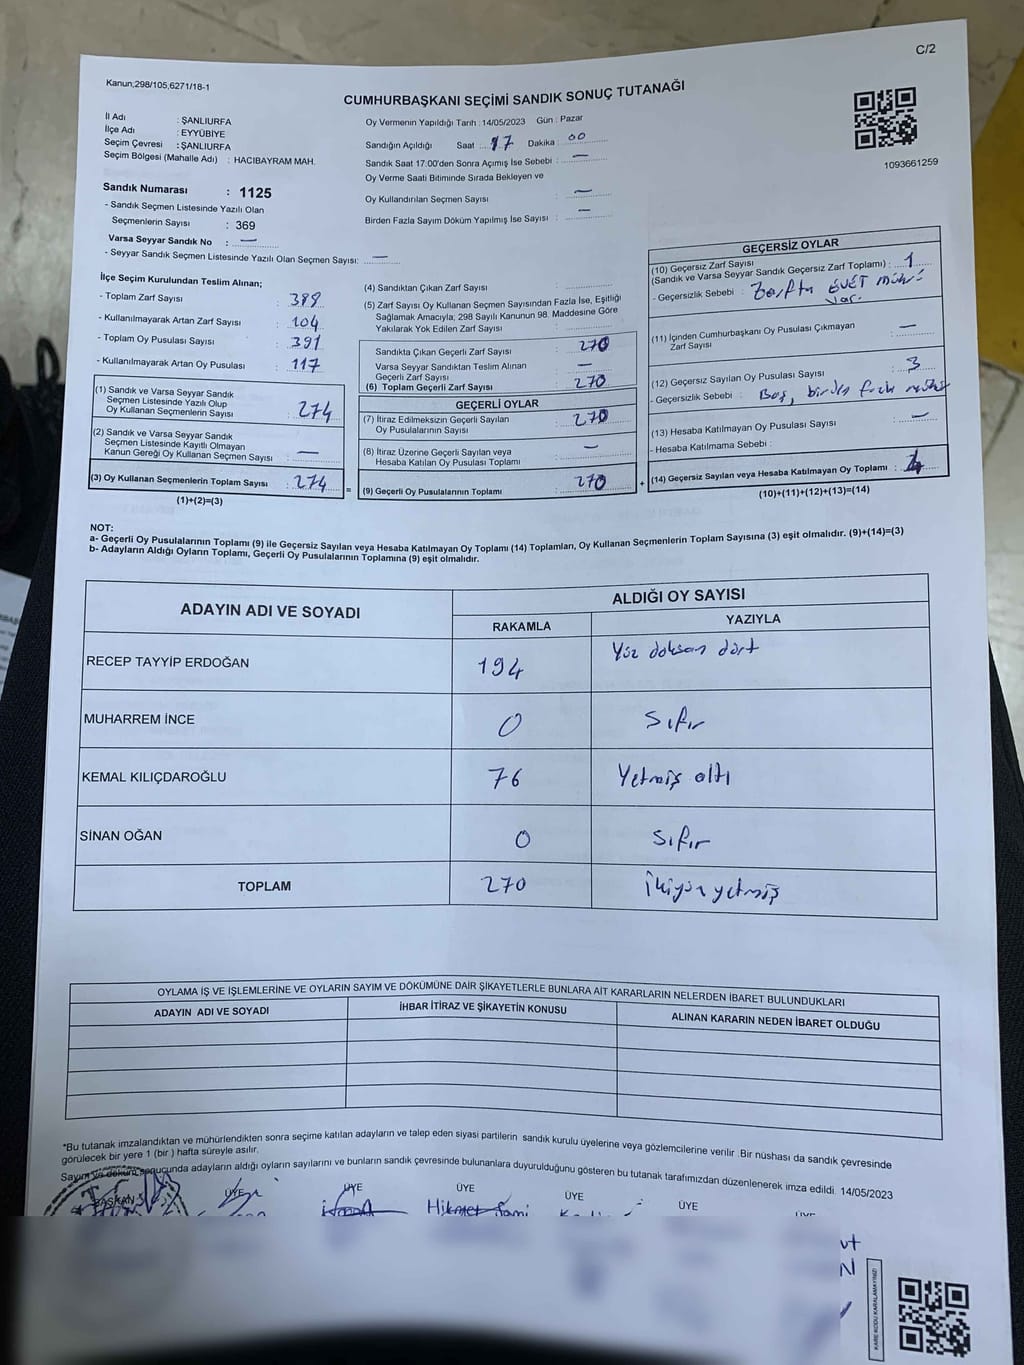 C/2
Kanun;298/105,6271/18-1
CUMHURBAŞKANI SEÇİMİ SANDIK SONUÇ TUTANAĞI
İl Adı : ŞANLIURFA
İlçe Adı : EYYÜBİYE
Seçim Çevresi : ŞANLIURFA
Seçim Bölgesi (Mahalle Adı) : HACIBAYRAM MAH.
Sandık Numarası : 1125
- Sandık Seçmen Listesinde Yazılı Olan
Seçmenlerin Sayısı : 369
Varsa Seyyar Sandık No : —
- Seyyar Sandık Seçmen Listesinde Yazılı Olan Seçmen Sayısı: —
Oy Vermenin Yapıldığı Tarih : 14/05/2023 Gün : Pazar
Sandığın Açıldığı Saat : 17 Dakika : 00
Sandık Saat 17.00'den Sonra Açımış İse Sebebi : —
Oy Verme Saati Bitiminde Sırada Bekleyen ve
Oy Kullandırılan Seçmen Sayısı : —
Birden Fazla Sayım Döküm Yapılmış İse Sayısı : —
1093661259
İlçe Seçim Kurulundan Teslim Alınan;
- Toplam Zarf Sayısı : 388
- Kullanılmayarak Artan Zarf Sayısı : 104
- Toplam Oy Pusulası Sayısı : 391
- Kullanılmayarak Artan Oy Pusulası : 117
(1) Sandık ve Varsa Seyyar Sandık
Seçmen Listesinde Yazılı Olup
Oy Kullanan Seçmenlerin Sayısı : 274
(2) Sandık ve Varsa Seyyar Sandık
Seçmen Listesinde Kayıtlı Olmayan
Kanun Gereği Oy Kullanan Seçmen Sayısı : —
(3) Oy Kullanan Seçmenlerin Toplam Sayısı : 274
(1)+(2)=(3)
=
(4) Sandıktan Çıkan Zarf Sayısı :
(5) Zarf Sayısı Oy Kullanan Seçmen Sayısından Fazla İse, Eşitliği
Sağlamak Amacıyla; 298 Sayılı Kanunun 98. Maddesine Göre
Yakılarak Yok Edilen Zarf Sayısı :
Sandıkta Çıkan Geçerli Zarf Sayısı : 270
Varsa Seyyar Sandıktan Teslim Alınan
Geçerli Zarf Sayısı : —
(6) Toplam Geçerli Zarf Sayısı : 270
GEÇERLİ OYLAR
(7) İtiraz Edilmeksizin Geçerli Sayılan
Oy Pusulalarının Sayısı : 270
(8) İtiraz Üzerine Geçerli Sayılan veya
Hesaba Katılan Oy Pusulası Toplamı : —
(9) Geçerli Oy Pusulalarının Toplamı : 270
+
GEÇERSİZ OYLAR
(10) Geçersiz Zarf Sayısı
(Sandık ve Varsa Seyyar Sandık Geçersiz Zarf Toplamı) : 1
- Geçersizlik Sebebi : Zarfta EVET mührü
var.
(11) İçinden Cumhurbaşkanı Oy Pusulası Çıkmayan
Zarf Sayısı —
(12) Geçersiz Sayılan Oy Pusulası Sayısı 3
- Geçersizlik Sebebi : Boş, birden fazla mühür
(13) Hesaba Katılmayan Oy Pusulası Sayısı : —
- Hesaba Katılmama Sebebi :
(14) Geçersiz Sayılan veya Hesaba Katılmayan Oy Toplamı : 4
(10)+(11)+(12)+(13)=(14)
NOT:
a- Geçerli Oy Pusulalarının Toplamı (9) ile Geçersiz Sayılan veya Hesaba Katılmayan Oy Toplamı (14) Toplamları, Oy Kullanan Seçmenlerin Toplam Sayısına (3) eşit olmalıdır. (9)+(14)=(3)
b- Adayların Aldığı Oyların Toplamı, Geçerli Oy Pusulalarının Toplamına (9) eşit olmalıdır.
ADAYIN ADI VE SOYADI
ALDIĞI OY SAYISI
RAKAMLA YAZIYLA
RECEP TAYYİP ERDOĞAN 194 Yüz doksan dört
MUHARREM İNCE 0 Sıfır
KEMAL KILIÇDAROĞLU 76 Yetmiş altı
SİNAN OĞAN 0 Sıfır
TOPLAM 270 İkiyüz yetmiş
OYLAMA İŞ VE İŞLEMLERİNE VE OYLARIN SAYIM VE DÖKÜMÜNE DAİR ŞİKAYETLERLE BUNLARA AİT KARARLARIN NELERDEN İBARET BULUNDUKLARI
ADAYIN ADI VE SOYADI İHBAR İTİRAZ VE ŞİKAYETİN KONUSU ALINAN KARARIN NEDEN İBARET OLDUĞU
*Bu tutanak imzalandıktan ve mühürlendikten sonra seçime katılan adayların ve talep eden siyasi partilerin sandık kurulu üyelerine veya gözlemcilerine verilir .Bir nüshası da sandık çevresinde
görülecek bir yere 1 (bir ) hafta süreyle asılır.
Sayım ve döküm sonucunda adayların aldığı oyların sayılarını ve bunların sandık çevresinde bulunanlara duyurulduğunu gösteren bu tutanak tarafımızdan düzenlenerek imza edildi. 14/05/2023
BAŞKAN ÜYE ÜYE ÜYE ÜYE ÜYE ÜYE
Hikmet Sami
KARE KODU KARALAMAYINIZ!